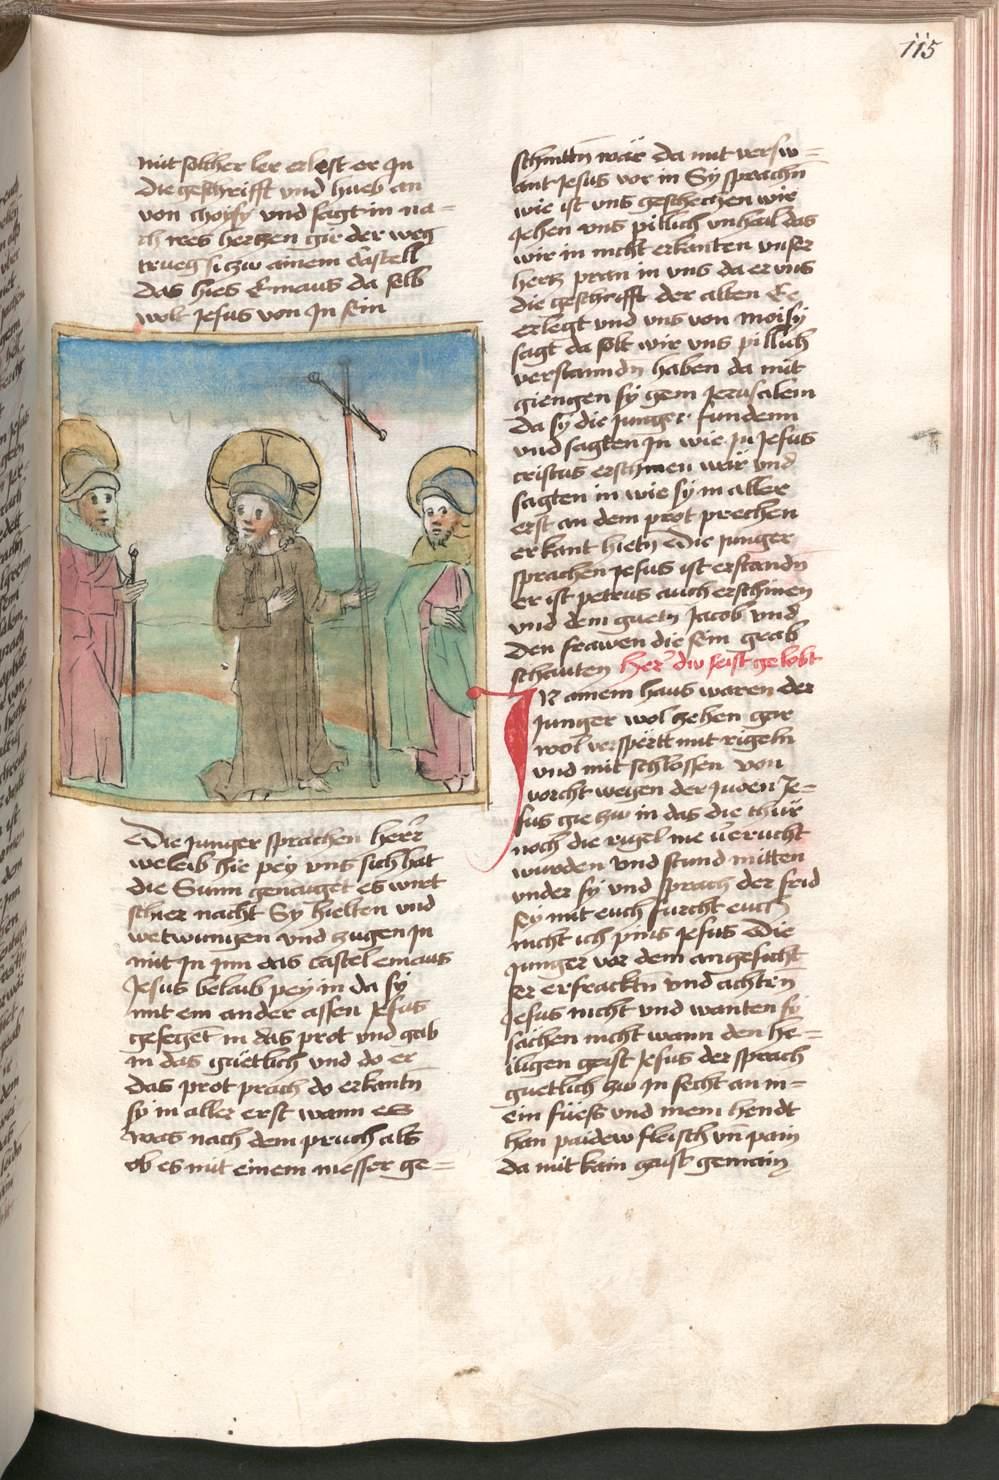 115
mit solicher ler erlest er In
die geschrifft vnd hueb an
von moysy vnd sagt in na=
ch ires hertzen gir der weg
trueg si zw ainem castell
das hies Emaus da selb
wolt Jesus von In sein
Die junger sprachen herr
weleib hie pey vns sich hat
die Sunn genaiget es wirt
schier nacht Sy hielten vnd
wetwungen vnd zugen In
mit In inn das castel emaus
Jesus belaib pey in da sy
mit ein ander assen Jesus
geseget in das prot vnd gab
in das güetlich vnd do er
das prot prach do erkantn
sy in aller erst wann es
was nach dem pruch als
ob es mit einem messer ge=
schnittn wär da mit versw=
ant Jesus vor in Sy sprachn
wie ist vns geschechen wir
Jehen vns pillich vnhail das
wir in nicht erkanten vnser
hertz pran in vns da er vns
die geschrifft der alten Ee
erlegt vnd vns von moisy
sagt da solt wir vns pillich
verstanndn haben da mit
giengen sy gem Jerusalem
Da sy die junger fundenn
vnd sagten In wie in Jesus
cristus erschinen wär vnd
sagten in wie sy in aller
erst an dem prot prechen
erkant hietn Die junger
sprachen Jesus ist erstandn
er ist petrus auch erschinen
vnd dem guetn Jacob vnd
den frawen die sein grab
schauten her dw seist gelobt
In ainem haus waren der
junger wol zehen gar
wol verspertt mit rigeln
vnd mit schlossen von
vorcht wegen der juden Je=
sus gie zw in das die thür
noch die rigel nie veruckt
wurden vnd stund mitten
vnder sy vnd sprach der frid
sey mit euch furcht euch
nicht ich pins Jesus Die
junger vor dem angesicht
ser erfracktn vnd achtn
Jesus nicht vnd wanten sy
sächen nicht wann den he=
iligen geist Jesus der sprach
güetlich zw In secht an m=
ein füess vnd mein hendt
han paidew fleisch vn pain
da mit kain geist gemain